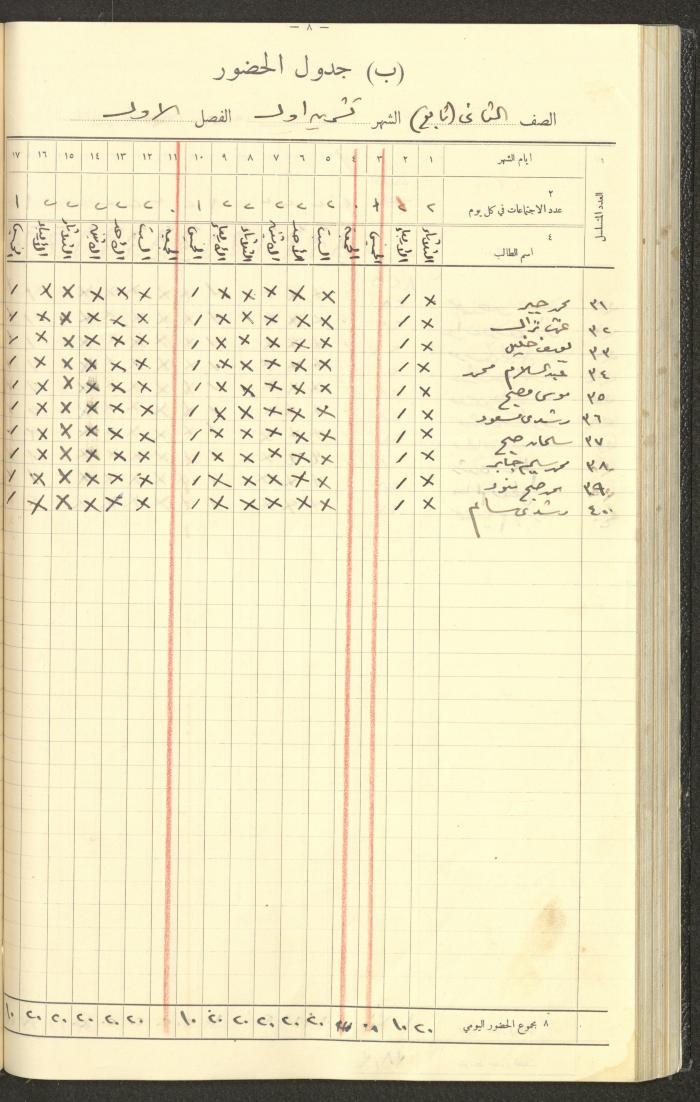 — ٨ —
(ب) جدول الحضور
الصف الثاني (تابع) الشهر تشرين اول الفصل الاول
١ العدد المتسلسل
ايام الشهر ١ ٢ ٣ ٤ ٥ ٦ ٧ ٨ ٩ ١٠ ١١ ١٢ ١٣ ١٤ ١٥ ١٦ ١٧
٢ عدد الاجتماعات في كل يوم ٢ ٠ ٢ ٢ ٢ ٢ ٢ ١ ٠ ٢ ٢ ٢ ٢ ٢ ١
٤ اسم الطالب الثلاثاء الأربعاء الخميس الجمعة السبت الأحد الاثنين الثلاثاء الأربعاء الخميس الجمعة السبت الأحد الاثنين الثلاثاء الأربعاء الخميس
٣١ محمد جبر × / × × × × × / × × × × × /
٣٢ × / × × × × × / × × × × × /
٣٣ يوسف خليل × / × × × × × / × × × × × /
٣٤ عبد السلام محمد × / × × × × × / × × × × × /
٣٥ موسى مصلح × / × × × × × / × × × × × /
٣٦ رشدي مسعود × / × × × × × / × × × × × /
٣٧ سليمان × / × × × × × / × × × × × /
٣٨ محمد سليم جابر × / × × × × × / × × × × × /
٣٩ × / × × × × × / × × × × × /
٤٠ رشدي سالم × / × × × × × / × × × × × /
٨ مجموع الحضور اليومي ٢٠ ١٠ ٢٠ ٢٠ ٢٠ ٢٠ ٢٠ ١٠ ٢٠ ٢٠ ٢٠ ٢٠ ٢٠ ١٠